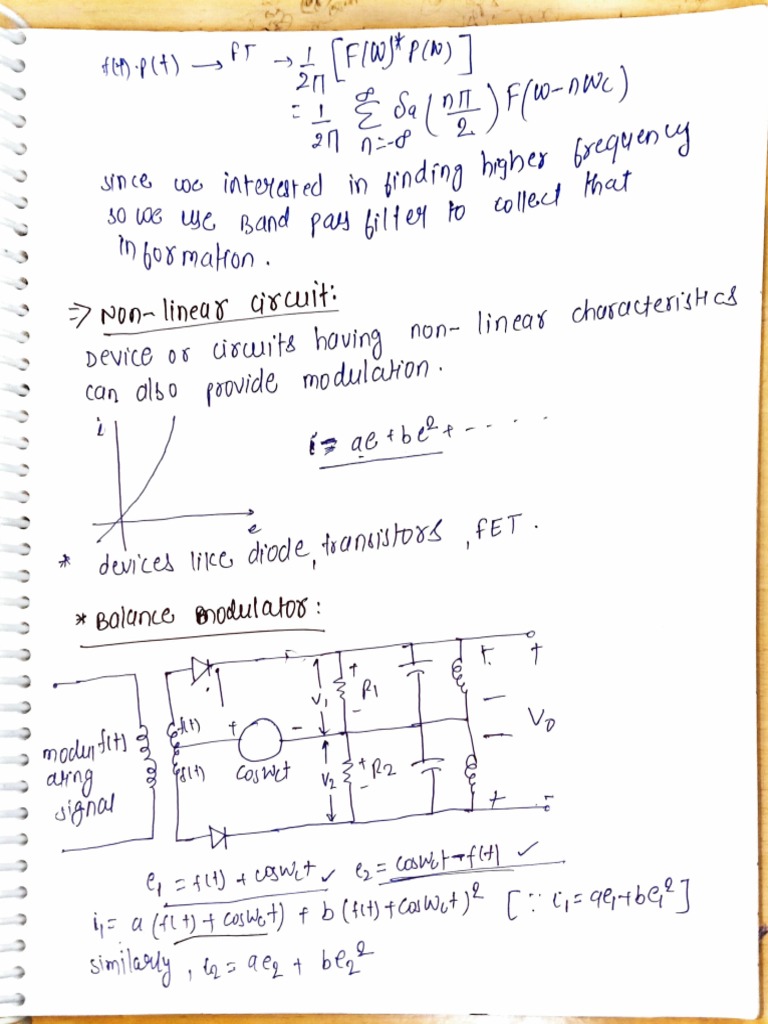 f(t)·p(t) → FT → 1/2π [F(ω)*P(ω)]
= 1/2π ∑ n=-∞ ∞ Sa (nπ/2) F(ω-nωc)
since we interested in finding higher frequency
so we use Band pass filter to collect that
information.
⇒ Non-linear circuit:
Device or circuits having non-linear characteristics
can also provide modulation.
i
i = ae + be² + - - . . .
e
* devices like diode, transistors, FET.
* Balance modulator:
+ + +
V1 R1
- -
modul f(t) f(t) + - V0
ating f(t) cosωct V2 + R2
signal - + -
e1 = f(t) + cosωct ✓ e2 = cosωct - f(t) ✓
i1 = a (f(t) + cosωct) + b (f(t) + cosωct)² [∵ i1 = ae1 + be1²]
similarly, i2 = ae2 + be2²